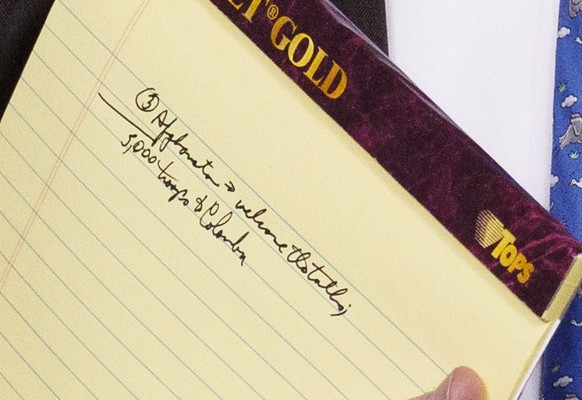 ET® GOLD
TOPS
③ Afghanistan → welcome the talks;
5,000 troops to Colombia